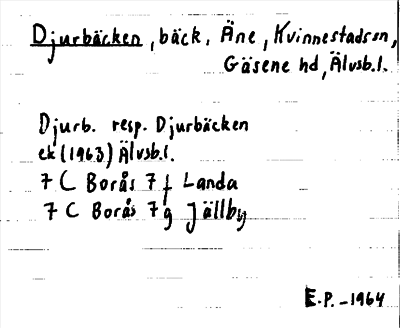 Djurbäcken, bäck, Äne, Kvinnestadssn,
Gäsene hd, Älvsb.l.
Djurb. resp. Djurbäcken
ek (1963) Älvsb.l.
7 C Borås 7 f Landa
7 C Borås 7g Jällby
E.P. - 1964